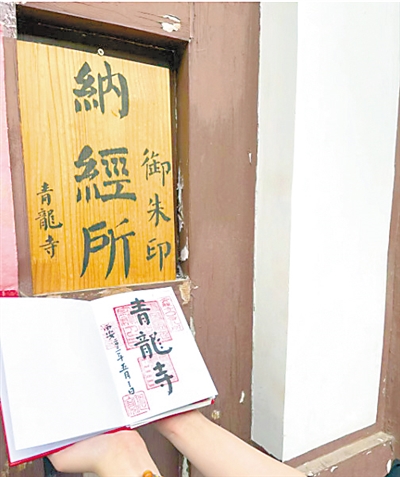 御朱印
納經所
青龍寺
青龍寺
西安
五月一日